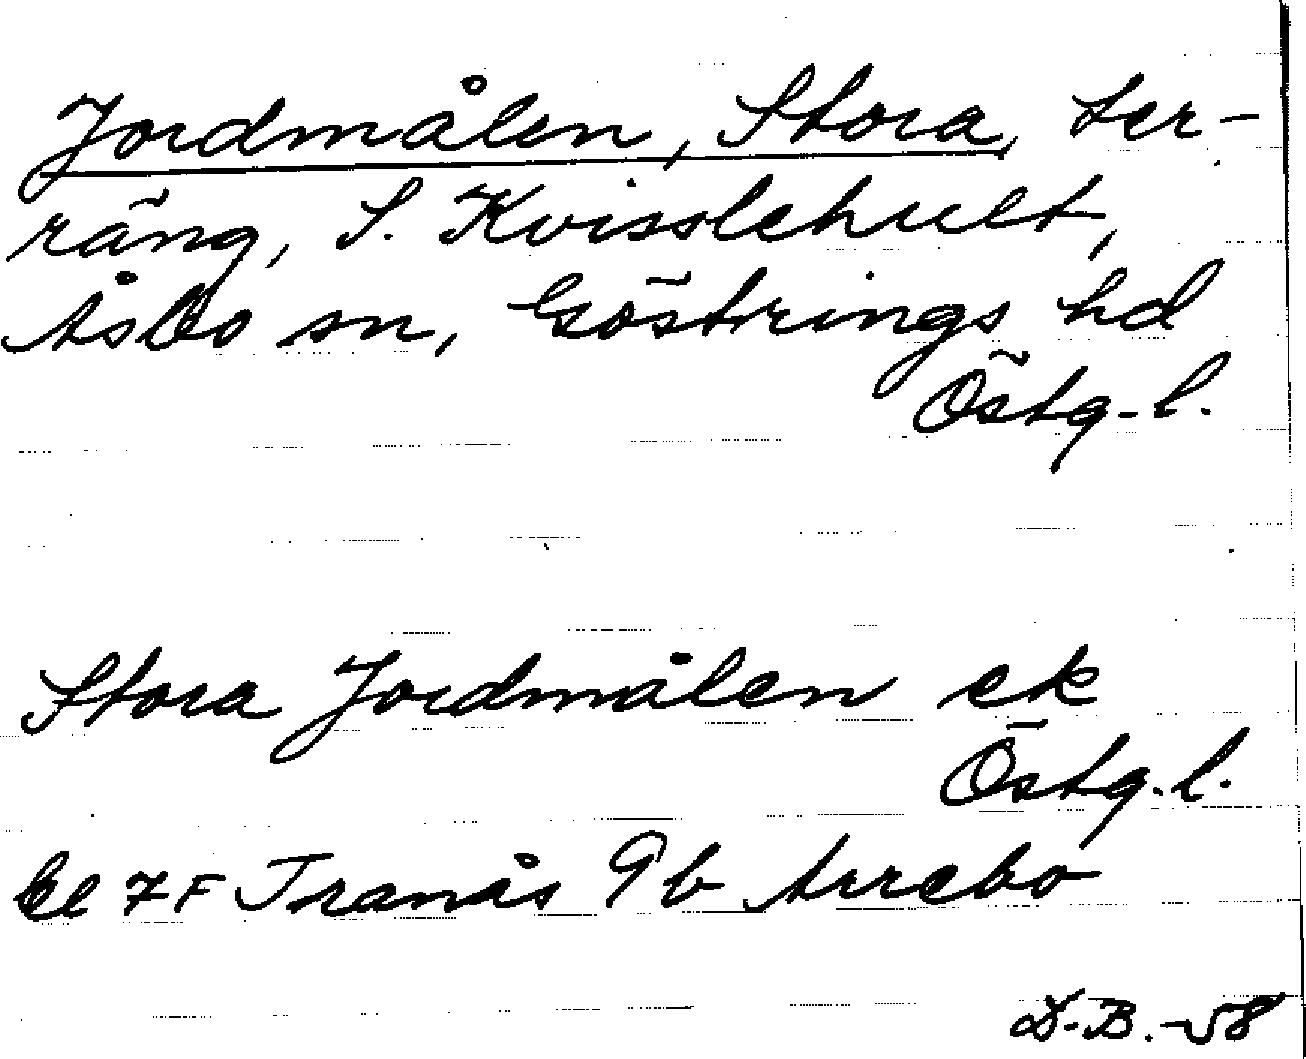 Jordmålen, Stora, ter-
räng, S. Kvisslehult,
Åsbo sn, Göstrings hd
Östg. l.
Stora Jordmålen ek
Östg. l.
bl 7F Tranås 9b Arrebo
D.B. -58